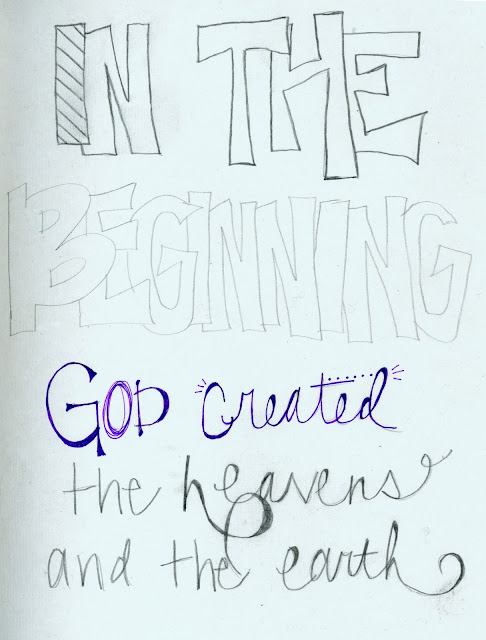 IN THE
BEGINNING
GOD created
the heavens
and the earth